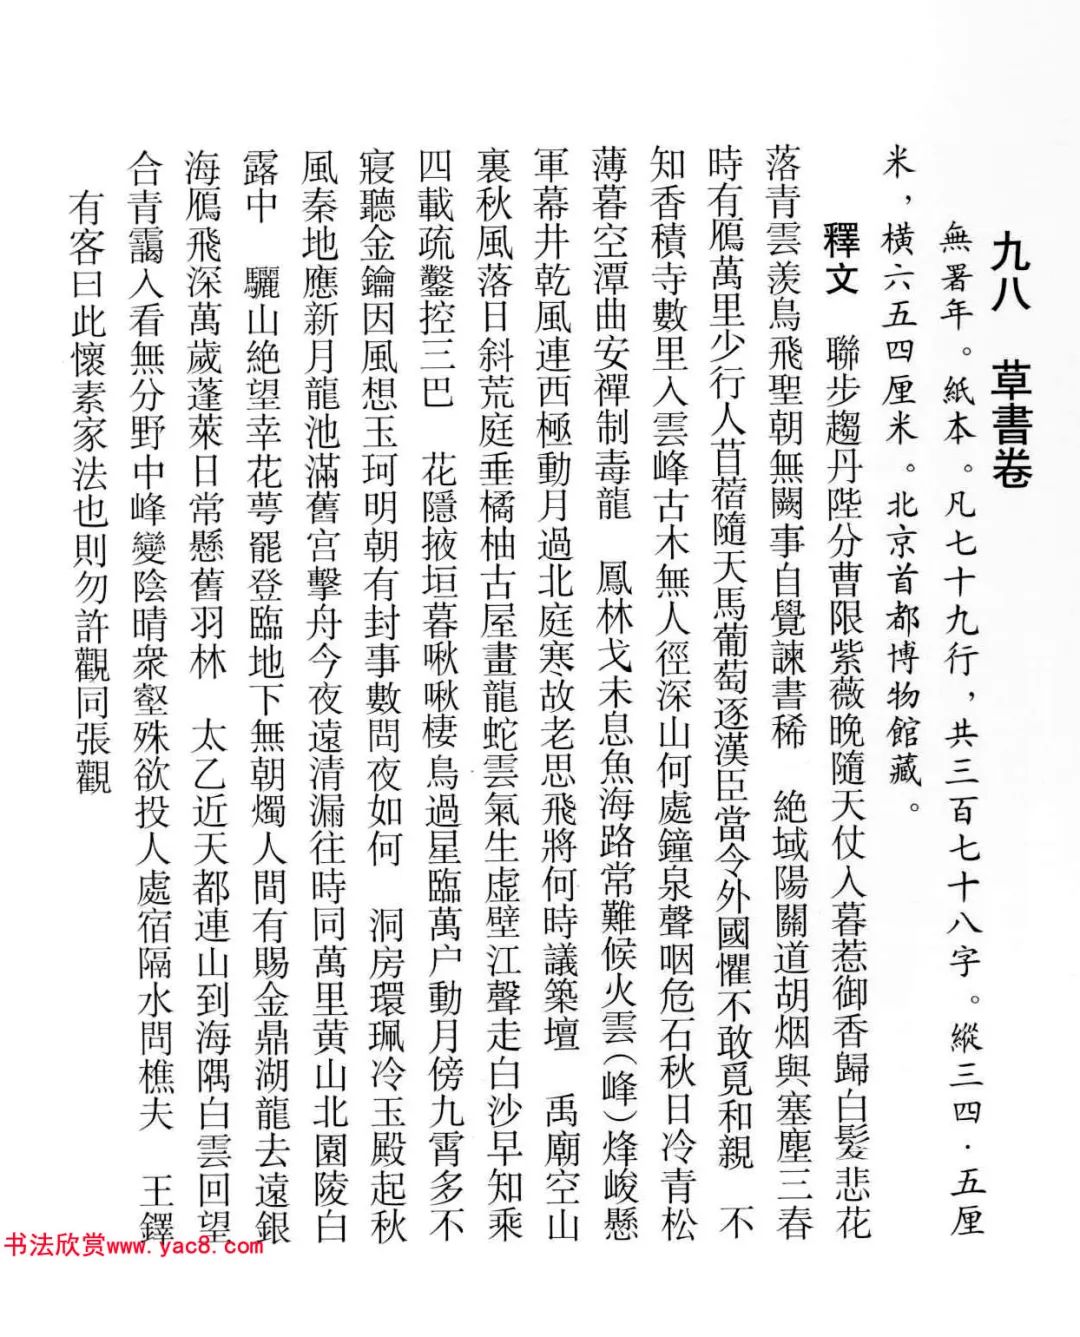 九八　草書卷
無署年。紙本。凡七十九行，共三百七十八字。縱三四·五厘
米，橫六五四厘米。北京首都博物館藏。
釋文　聯步趨丹陛分曹限紫薇晚隨天仗入暮惹御香歸白髮悲花
落青雲羨鳥飛聖朝無闕事自覺諫書稀　絶域陽關道胡烟與塞塵三春
時有鴈萬里少行人苜蓿隨天馬葡萄逐漢臣當令外國懼不敢覓和親　不
知香積寺數里入雲峰古木無人徑深山何處鐘泉聲咽危石秋日冷青松
薄暮空潭曲安禪制毒龍　鳳林戈未息魚海路常難候火雲（峰）烽峻懸
軍幕井乾風連西極動月過北庭寒故老思飛將何時議築壇　禹廟空山
裏秋風落日斜荒庭垂橘柚古屋畫龍蛇雲氣生虛壁江聲走白沙早知乘
四載疏鑿控三巴　花隱掖垣暮啾啾棲鳥過星臨萬户動月傍九霄多不
寢聽金鑰因風想玉珂明朝有封事數問夜如何　洞房環珮冷玉殿起秋
風秦地應新月龍池滿舊宫擊舟今夜遠清漏往時同萬里黄山北園陵白
露中　驪山絶望幸花萼罷登臨地下無朝燭人間有賜金鼎湖龍去遠銀
海鴈飛深萬歲蓬萊日常懸舊羽林　太乙近天都連山到海隅白雲回望
合青靄入看無分野中峰變陰晴衆壑殊欲投人處宿隔水問樵夫　王鐸
有客曰此懷素家法也則勿許觀同張觀
书法欣赏www.yac8.com